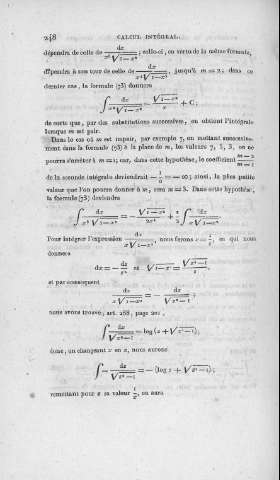 248 CALCUL INTÉGRAL.
dépendra de celle de dx / x⁶√(1−x²) ; celle-ci, en vertu de la même formule,
dépendra à son tour de celle de dx / x⁴√(1−x²), jusqu'à m = 2 ; dans ce
dernier cas, la formule (75) donnera
∫ dx / x²√(1−x²) = − √(1−x²) / x + C ;
de sorte que, par des substitutions successives, on obtient l'intégrale
lorsque m est pair.
Dans le cas où m est impair, par exemple 7, en mettant successive-
ment dans la formule (75) à la place de m, les valeurs 7, 5, 3, on ne
pourra s'arrêter à m = 1 ; car, dans cette hypothèse, le coefficient (m − 2)/(m − 1)
de la seconde intégrale deviendrait − 1/0 = − ∞ ; ainsi, la plus petite
valeur que l'on pourra donner à m, sera m = 3. Dans cette hypothèse,
la formule (75) deviendra
∫ dx / x³√(1−x²) = − √(1−x²) / 2x² + 1/2 ∫ dx / x√(1−x²).
Pour intégrer l'expression dx / x√(1−x²), nous ferons x = 1/z, ce qui nous
donnera
dx = − dz/z² et √(1−x²) = √(z²−1) / z,
et par conséquent
dx / x√(1−x²) = − dz / √(z²−1) ;
nous avons trouvé, art. 288, page 201,
∫ dx / √(x²−1) = log (x + √(x²−1)),
donc, en changeant x en z, nous aurons
∫ − dz / √(z²−1) = − (log z + √(z²−1)) ;
remettant pour z sa valeur 1/x, on aura